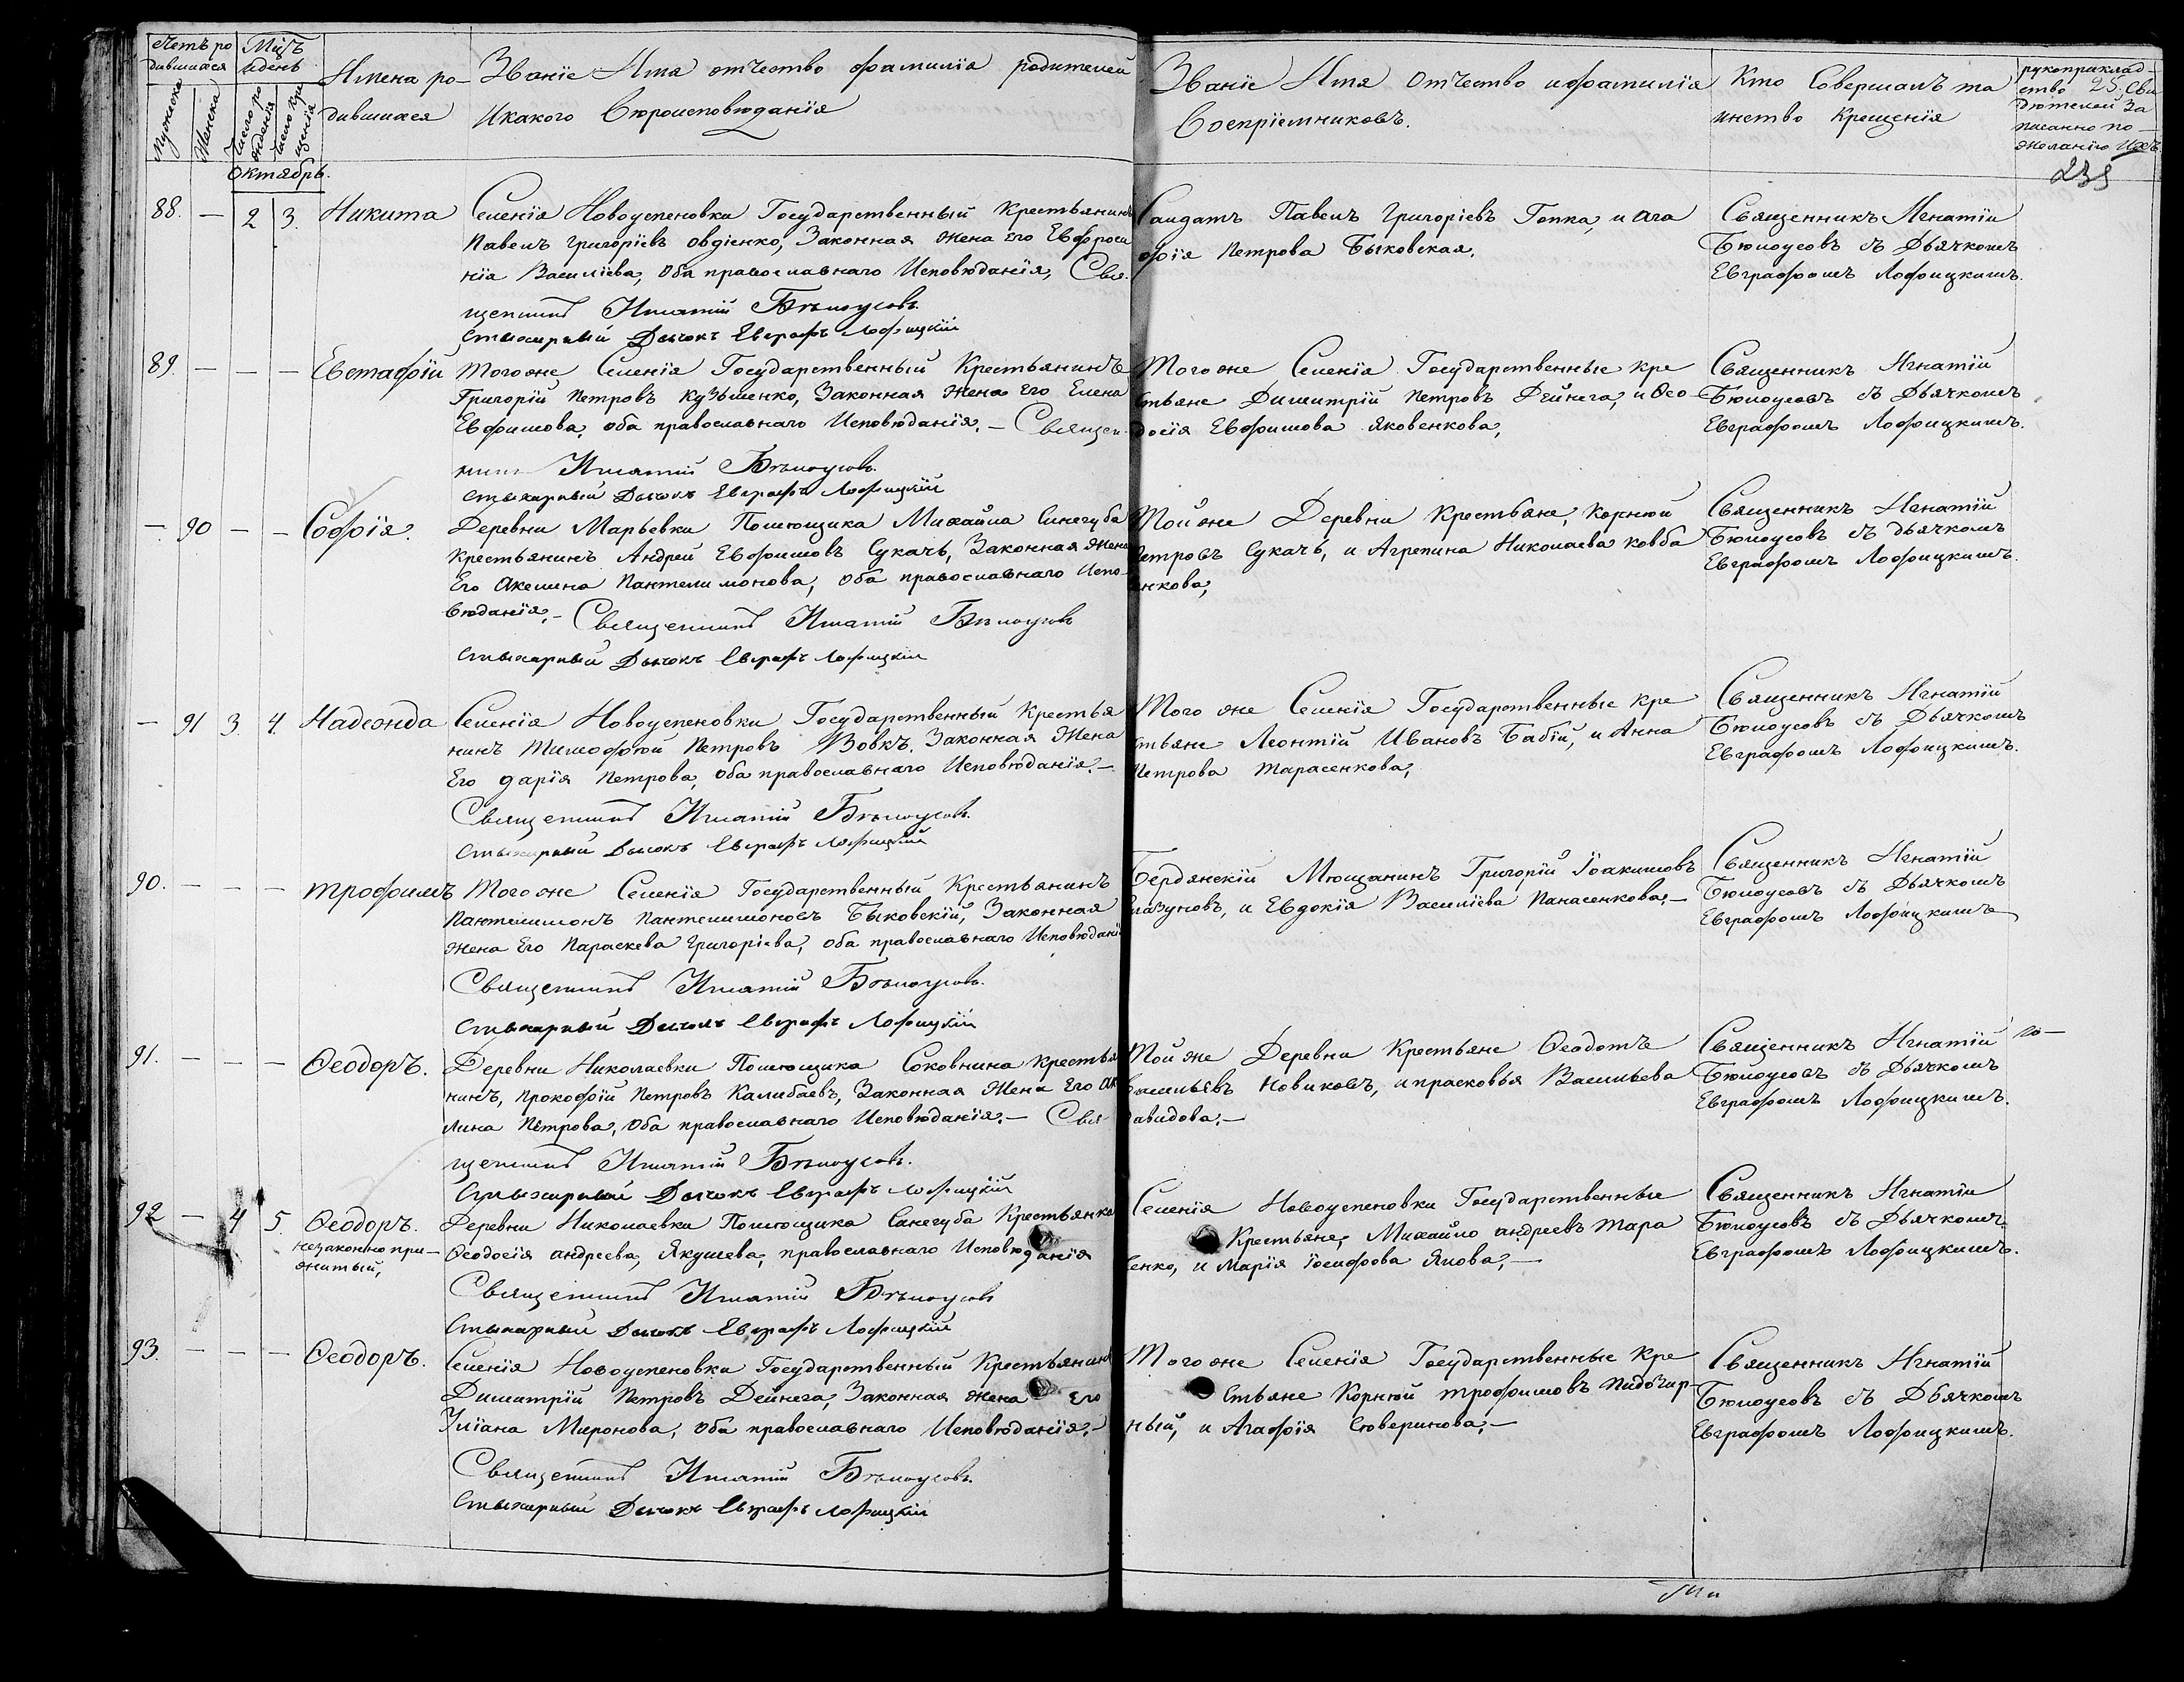 Счетъ ро
дившихся
Мужеска
Женска
Мцъ
и день
Число ро
жденія
Число кре
щенія
Имена ро-
дившихся
Званіе Имя отчество фамилія родителей
и какого вѣроисповѣданія
Званіе Имя Отчество и фамилія
Воспріемниковъ.
Кто Совершалъ та
инство Крещенія
рукоприклад-
ство Сви
дѣтелей за
писанно по-
желанію ихъ
25
235
Октябрь.
88. — 2 3. Никита
Селенія Новоуспеновки Государственный Крестьянинъ
Павелъ григоріевъ овдіенко, Законная жена Его Евфроси
нія Василіева, Оба православнаго Исповѣданія, Свя-
щенникъ Игнатій Бѣлоусовъ.
Стихарный Дьячокъ Евграфъ Лофицкій
Салдатъ Павелъ Григоріевъ Гопка, и Ага
фія Петрова Быковская.
Священникъ Игнатіи
Бѣлоусовъ съ Дьячкомъ
Евграфомъ Лофицкимъ.
89. — — — Евстафій
Тогоже Селенія Государственный Крестьянинъ
Григорій Петровъ Кузьменко, Законная жена Его Елена
Евфимова, оба православнаго Исповѣданія. — Священ-
никъ Игнатій Бѣлоусовъ.
Стихарный Дьячокъ Евграфъ Лофицкій
Тогоже Селенія Государственные Кре
стьяне Димитрій Петровъ Дейнега, и Ѳео
досія Евфимова Яковенкова,
Священникъ Игнатій
Бѣлоусовъ съ Дьячкомъ
Евграфомъ Лофицкимъ.
— 90 — — Софія.
Деревни Марьевки Помѣщика Михайла Синегуба
Крестьянинъ Андрей Евфимовъ Сукачь, Законная жена
Его Акелина Пантелимонова, оба православнаго Испо-
вѣданія, — Священникъ Игнатій Бѣлоусовъ
Стихарный Дьячокъ Евграфъ Лофицкій
Той же Деревни Крестьяне, Корнѣй
Петровъ Сукачь, и Агрепина Николаева Ковба
енкова,
Священникъ Игнатій
Бѣлоусовъ съ дьячкомъ
Евграфомъ Лофицкимъ.
— 91 3. 4. Надежда
Селенія Новоуспеновки Государственный Крестья
нинъ Тимофѣй Петровъ Вовкъ, Законная Жена
Его дарія Петрова, оба православнаго Исповѣданія. —
Священникъ Игнатій Бѣлоусовъ.
Стихарный Дьячокъ Евграфъ Лофицкій
Тогоже Селенія Государственные Кре
стьяне Леонтій Ивановъ Бабій, и Анна
Петрова Тарасенкова,
Священникъ Игнатіи
Бѣлоусовъ съ Дьячкомъ
Евграфомъ Лофицкимъ.
90. — — — Трофимъ
Тогоже Селенія Государственный Крестьянинъ
Пантелимонъ Пантелимоновъ Быковскій, Законная
жена Его Параскева григоріева, оба православнаго Исповѣдані
Священникъ Игнатій Бѣлоусовъ.
Стихарный Дьячокъ Евграфъ Лофицкій
Бердянскій Мѣщанинъ Григорій Іоакимовъ
Глазуновъ, и Евдокія Василіева Панасенкова, —
Священникъ Игнатій
Бѣлоусовъ съ Дьячкомъ
Евграфомъ Лофицкимъ
91. — — — Ѳеодоръ.
Деревни Николаевки Помѣщика Соковнина крестья
нинъ, прокофій Петровъ Калибаевъ, Законная Жена Его Аку
лина Петрова, Оба православнаго Исповѣданія. — Свя-
щенникъ Игнатій Бѣлоусовъ.
Стихарный Дьячокъ Евграфъ Лофицкій
Той же Деревни Крестьяне Ѳеодотъ
Васильевъ Новиковъ, и прасковья Васильева
давидова, —
Священникъ Игнатій
Бѣлоусовъ съ Дьячкомъ
Евграфомъ Лофицкимъ.
92 — 4 5. Ѳеодоръ.
незаконно при-
житый,
Деревни Николаевки Помѣщика Синегуба Крестьянка
Ѳеодосія андреева, Якушева, православнаго Исповѣданія
Священникъ Игнатій Бѣлоусовъ
Стихарный Дьячокъ Евграфъ Лофицкій
Селенія Новоуспеновки Государственные
Крестьяне, Михайло андреевъ Тара
сенко, и Марія Іосифова Ялова, —
Священникъ Игнатіи
Бѣлоусовъ съ Дьячкомъ
Евграфомъ Лофицкимъ.
93. — — — Ѳеодоръ.
Селенія Новоуспеновки Государственный Крестьянинъ
Димитрій Петровъ Дейнега, Законная жена Его
Уліана Миронова, оба православнаго Исповѣданія, —
Священникъ Игнатій Бѣлоусовъ.
Стихарный Дьячокъ Евграфъ Лофицкій
Тогоже Селенія Государственные Кре
стьяне Корнѣй трофимовъ Пидочир-
ный, и Агафія Сѣверинова, —
Священникъ Игнатіи
Бѣлоусовъ съ Дьячкомъ
Евграфомъ Лофицкимъ.